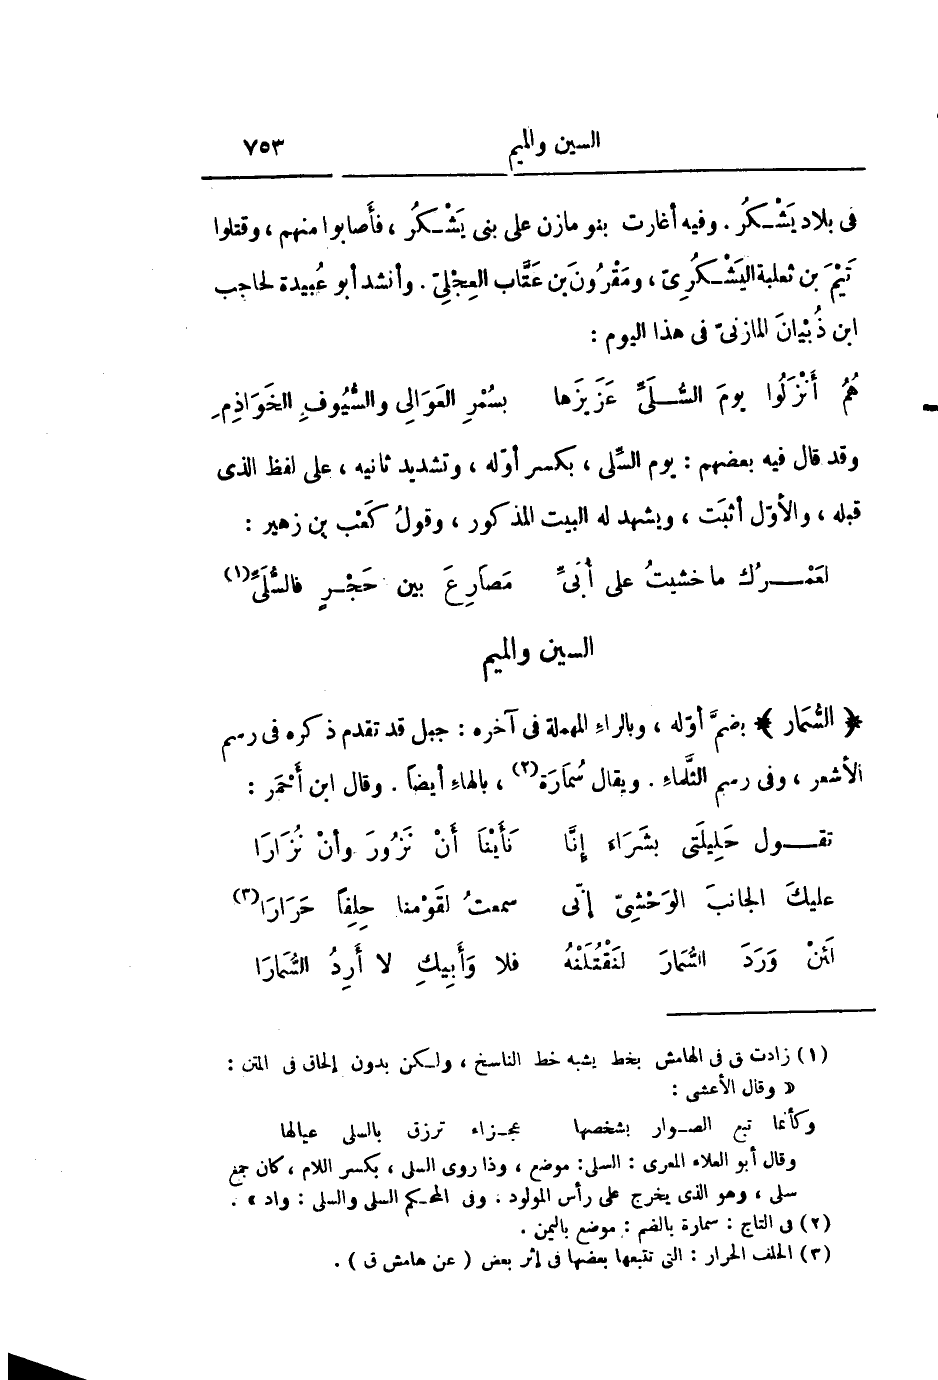 السين والميم ٧٥٣
فى بلاد يَشْكُر . وفيه أغارت بنو مازن على بنى يَشْكُر ، فأَصابوا منهم ، وقتلوا
تَيْمَ بن ثعلبة اليَشْكُرِىّ ، ومَقْرُونَ بن عَتَّاب العِجْلِىّ . وأنشد أبو عُبيدة لحاجب
ابن ذُبْيانَ المازنىّ فى هذا اليوم :
هُمُ أَنْزَلُوا يومَ السُّلَىِّ عَزَيزَها بسُمْرِ العَوَالِى والسُّيُوفِ الخَوَاذِمِ
وقد قال فيه بعضهم : يوم السِّلى ، بكسر أوّله ، وتشديد ثانيه ، على لفظ الذى
قبله ، والأوّل أثبَت ، ويشهد له البيت المذكور ، وقولُ كَعْب بن زهير :
لعَمْرُكَ ما خشيتُ على أُبَىٍّ مَصَارِعَ بين حَجْرٍ فالسُّلَىِّ(١)
السين والميم
﴿ السُّمَار ﴾ بضمّ أوّله ، وبالراءِ المهملة فى آخره : جبل قد تقدم ذكره فى رسم
الأشعر ، وفى رسم الثَّلماءِ . ويقال سُمَارَة(٢) ، بالهاءِ أيضاً . وقال ابن أَحْمَر :
تقول حَلِيلَتِى بشَرَاءَ إِنَّا نَأَيْنَا أَنْ نَزُورَ وأنْ نُزَارَا
عليكَ الجانبَ الوَحْشِىّ إِنّى سمعتُ لقَوْمنا حِلِفاً حَرَارَا(٣)
لَئنْ وَرَدَ السُّمَارَ لنَقْتُلَنْهُ فلا وَأَبِيكِ لا أَرِدُ السُّمَارَا
(١) زادت ق فى الهامش بخط يشبه خط الناسخ ، ولكن بدون إلحاق فى المتن :
« وقال الأعشى :
وكأنما تبع الصوار بشخصها عجزاء ترزق بالسلى عيالها
وقال أبو العلاء المعرى : السلى : موضع ، وذا روى السلى ، بكسر اللام ، كان جمع
سلى ، وهو الذى يخرج على رأس المولود . وفى المحكم السلى والسلى : واد » .
(٢) فى التاج : سمارة بالضم : موضع باليمن .
(٣) الحلف الحرار : التى تتبعها بعضها فى إثر بعض ( عن هامش ق ) .